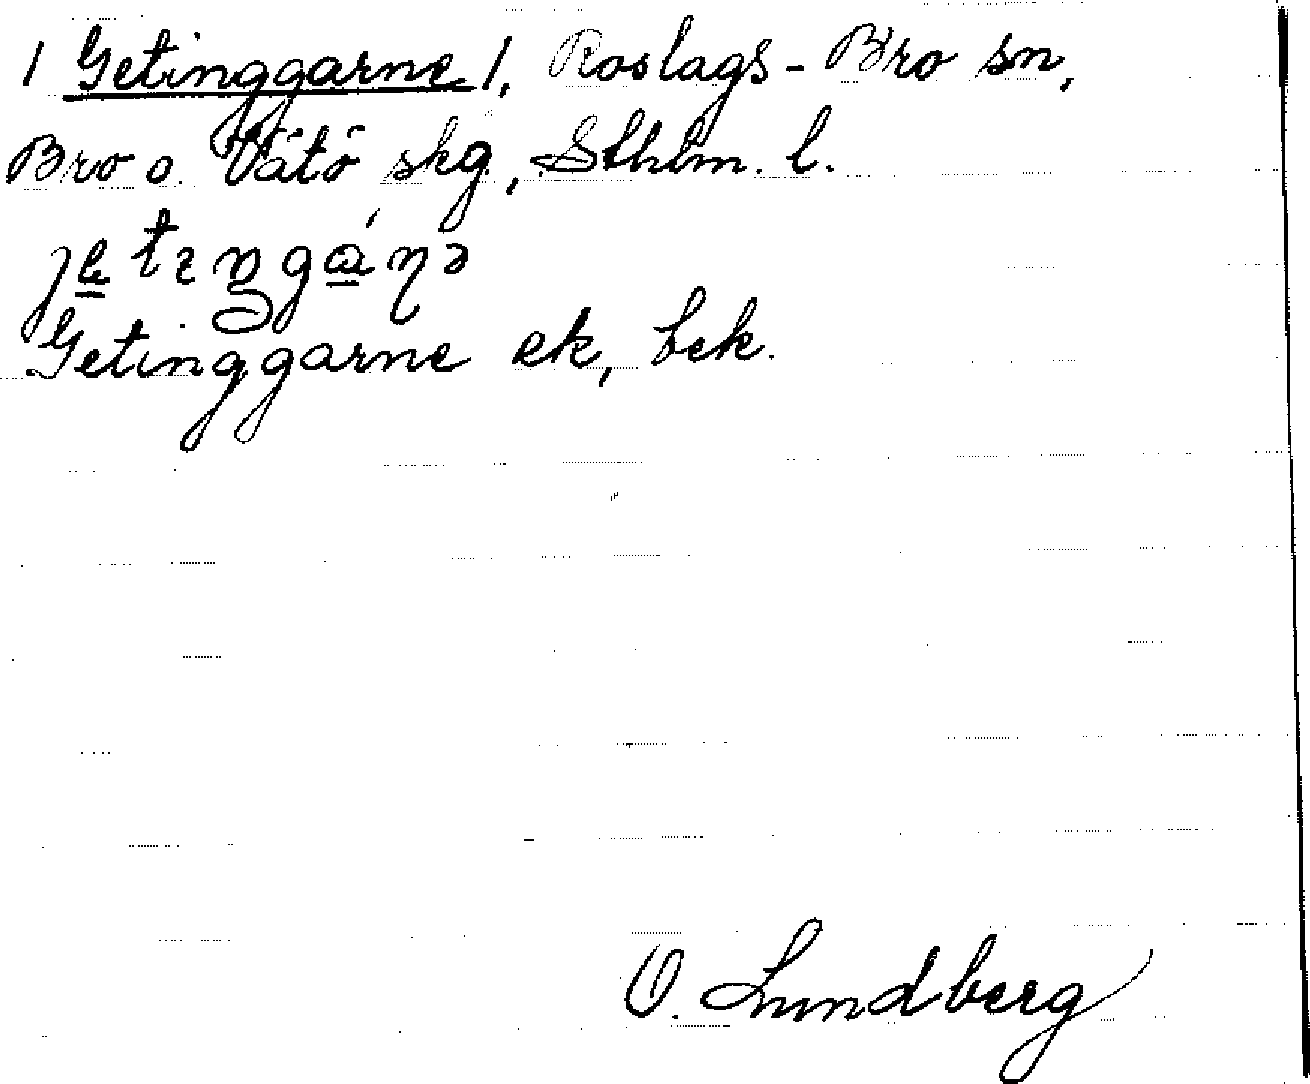 / Getinggarne /, Roslags-Bro sn,
Bro o. Vätö skg, Sthlm. l.
Getinggarne ek, bek.
O. Lundberg